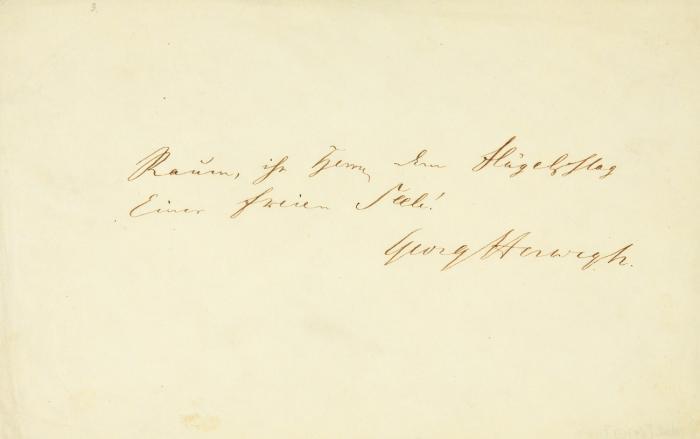 3.
Raum, ihr Herrn, dem Flügelschlag
Einer freien Seele!
Georg Herwegh.